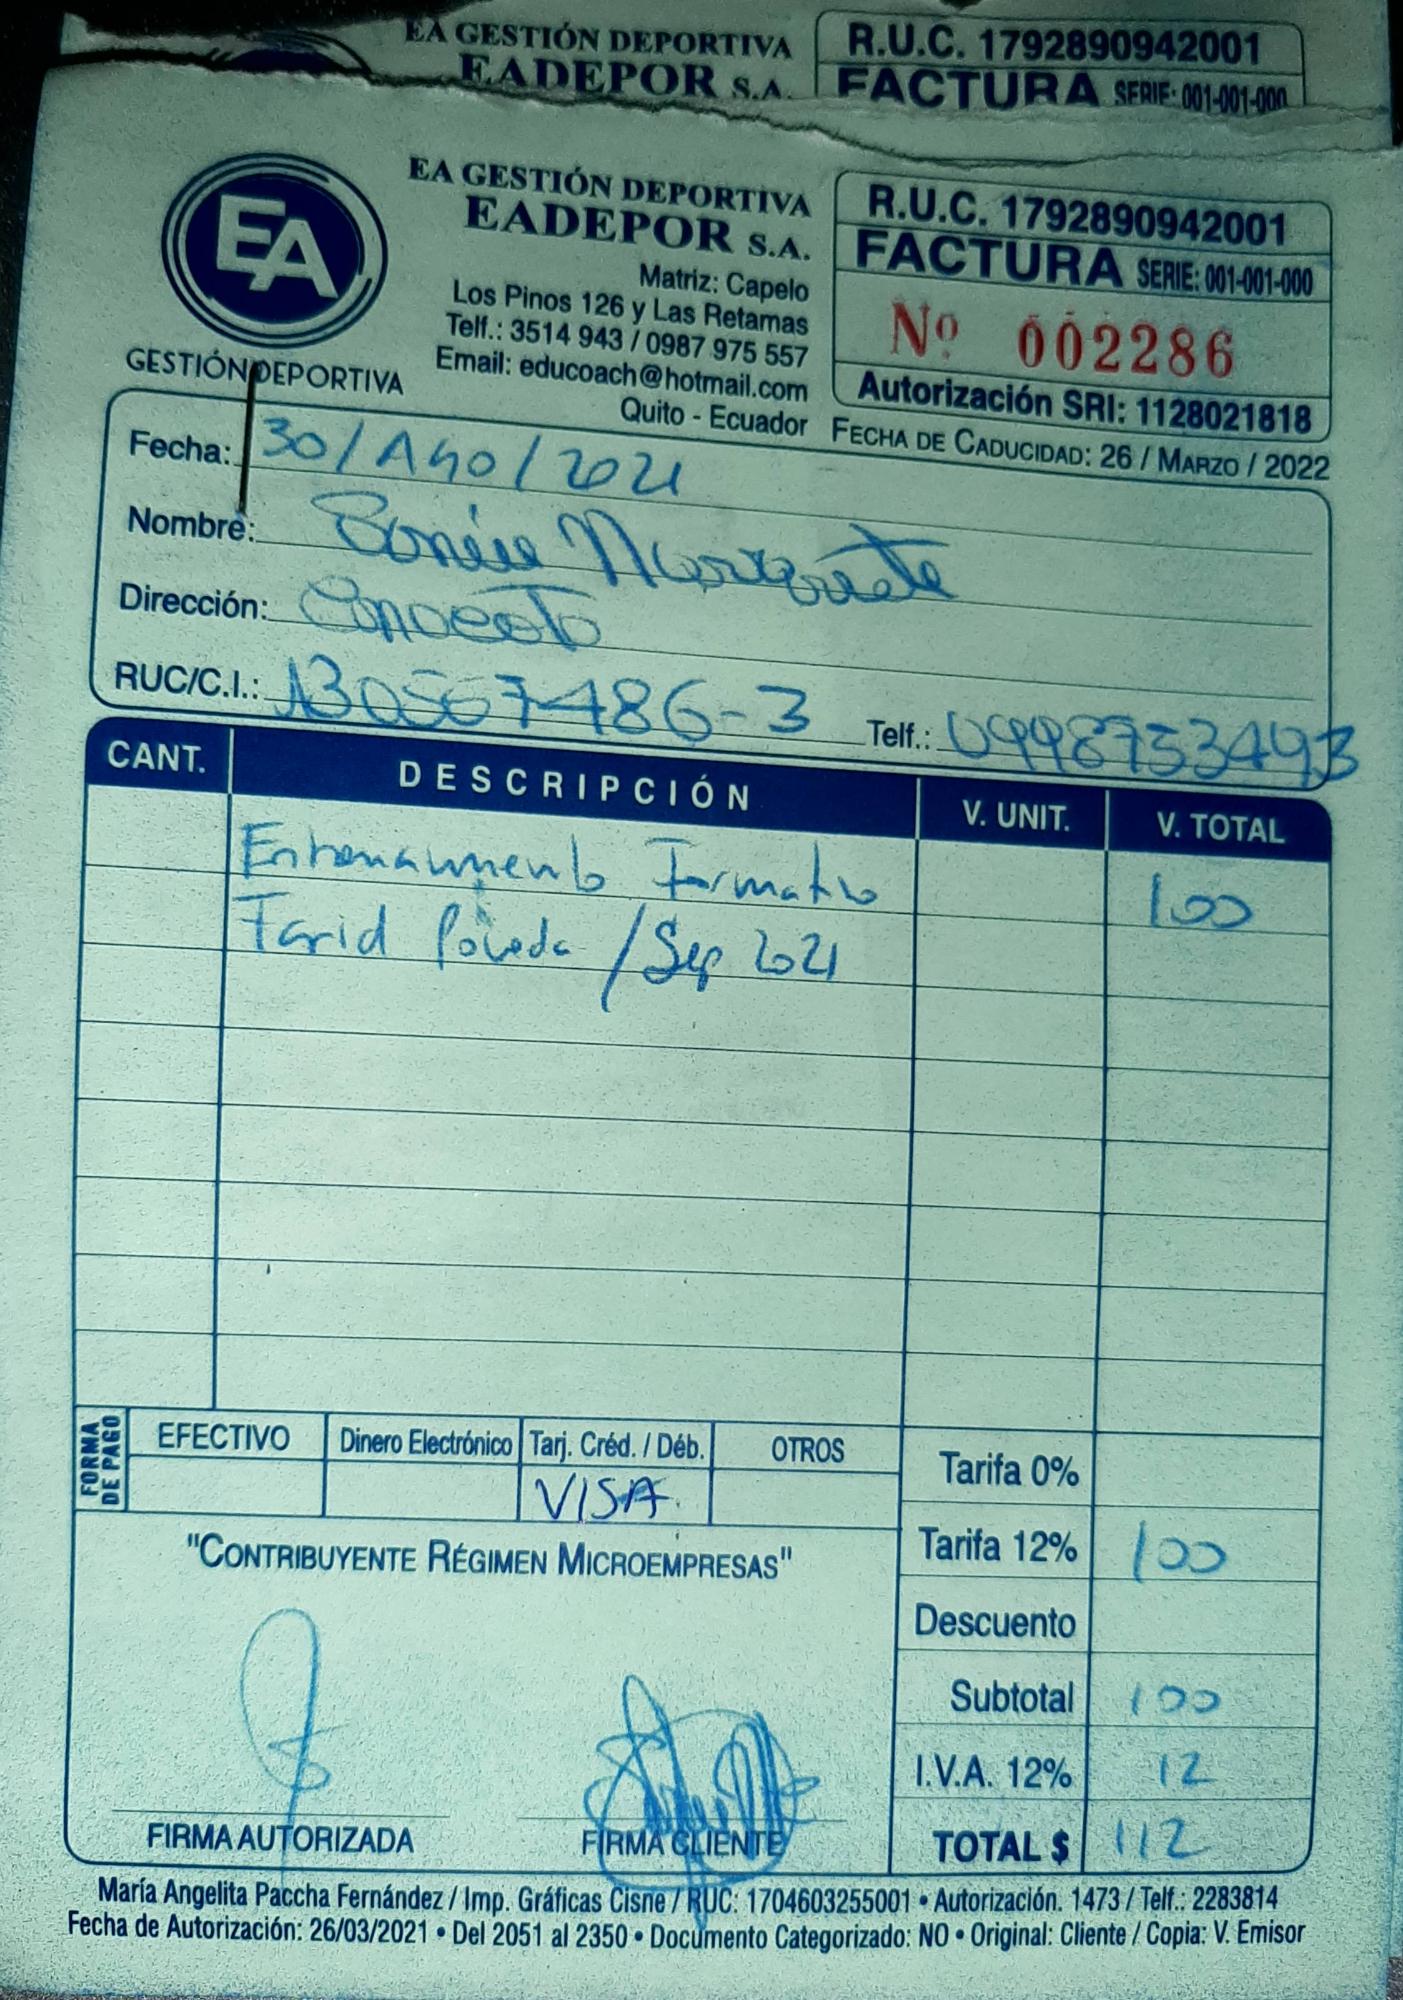 EA GESTIÓN DEPORTIVA
EADEPOR S.A.
R.U.C. 1792890942001
FACTURA SERIE: 001-001-000
EA
GESTIÓN DEPORTIVA
EA GESTIÓN DEPORTIVA
EADEPOR S.A.
Matriz: Capelo
Los Pinos 126 y Las Retamas
Telf.: 3514 943 / 0987 975 557
Email: educoach@hotmail.com
Quito - Ecuador
R.U.C. 1792890942001
FACTURA SERIE: 001-001-000
Nº 002286
Autorización SRI: 1128021818
FECHA DE CADUCIDAD: 26 / MARZO / 2022
Fecha: 30/Ago/2021
Nombre:
Dirección:
RUC/C.I.: 130567486-3 Telf.:
CANT. DESCRIPCIÓN V. UNIT. V. TOTAL
Entrenamiento Formativo 100
Farid Poveda / Sep 2021
FORMA DE PAGO
EFECTIVO Dinero Electrónico Tarj. Créd. / Déb. OTROS
VISA
Tarifa 0%
Tarifa 12% 100
Descuento
Subtotal 100
I.V.A. 12% 12
TOTAL $ 112
"CONTRIBUYENTE RÉGIMEN MICROEMPRESAS"
FIRMA AUTORIZADA FIRMA CLIENTE
María Angelita Paccha Fernández / Imp. Gráficas Cisne / RUC: 1704603255001 • Autorización. 1473 / Telf.: 2283814
Fecha de Autorización: 26/03/2021 • Del 2051 al 2350 • Documento Categorizado: NO • Original: Cliente / Copia: V. Emisor